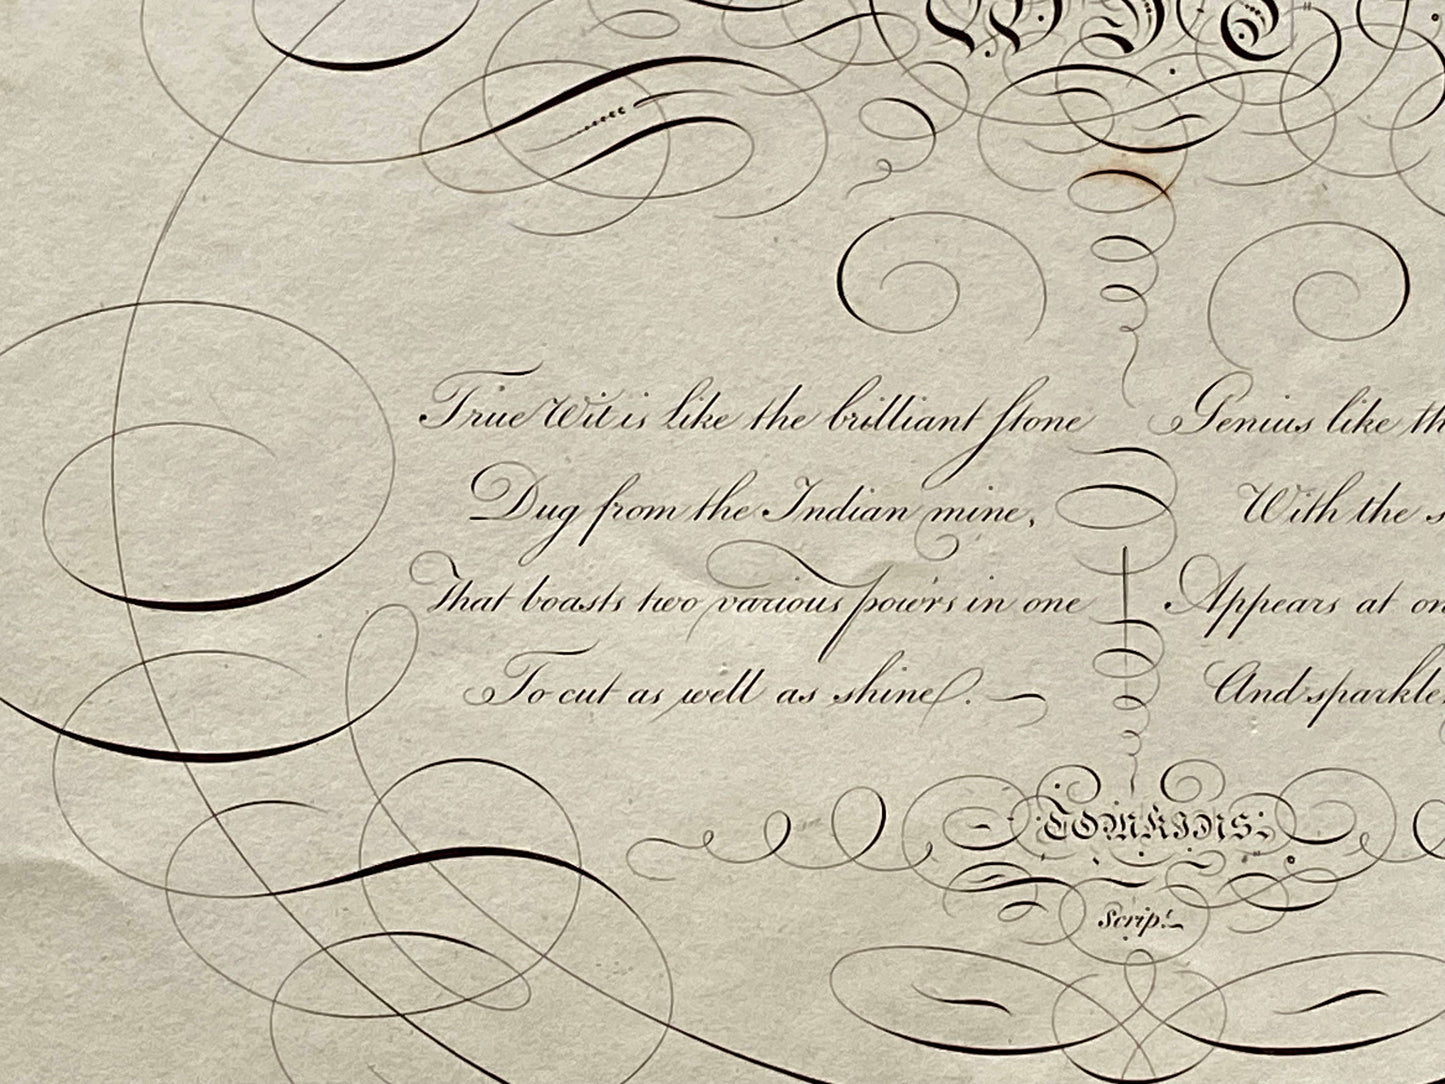 WIT
True Wit is like the brilliant ſtone
Dug from the Indian mine,
That boasts two various pow'rs in one
To cut as well as shine.
Genius like th
With the s
Appears at on
And sparkle
TOMKINS;
Scrip.t